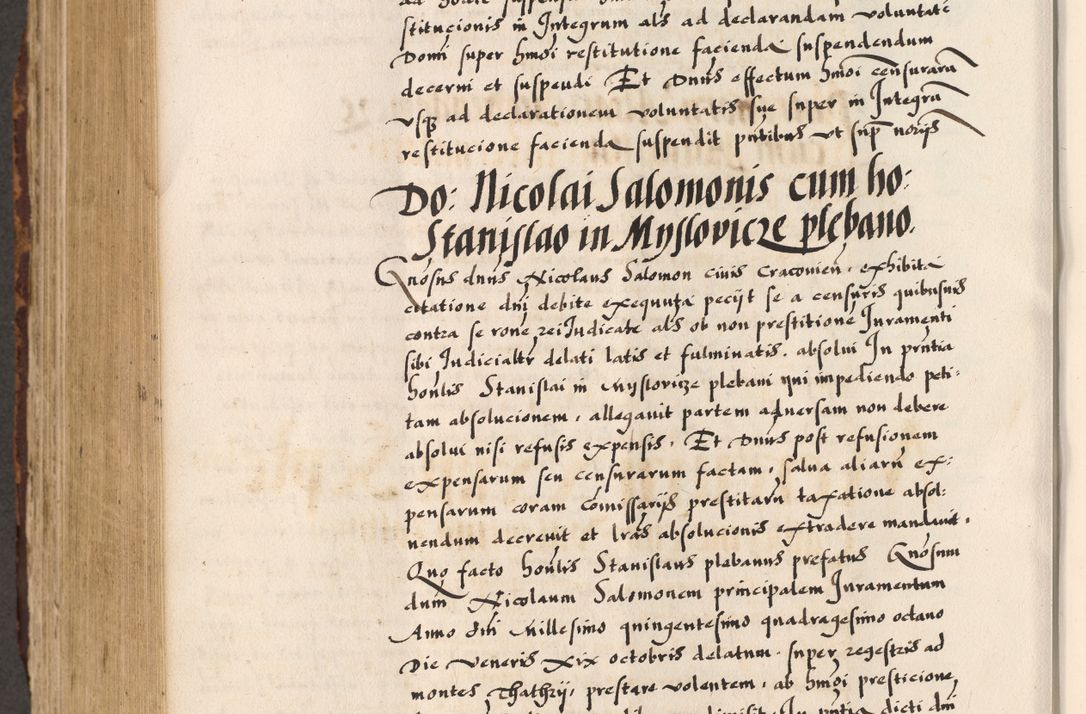 stitucionis in Integrum als ad declarandam voluntate
Domi super hmoi restitutione facienda suspendendum
decerni et suspendi Et Dnus effectum hmoi censurarũ
vsq ad declarationem voluntatis sue super in Integrũ
restitucione facienda suspendit pntibus vt sup noris
Do: Nicolai Salomonis cum ho:
Stanislao in Myslovicze plebano.
Gnosus dnus Nicolaus Salomon ciuis Cracovien, exhibita
citatione dnj debite exequuta pecijt se a censuris quibusuis
contra se rone rei Judicate als ob non prestitione Juramenti
sibi Judicialtr delati latis et fulminatis, absolui In pntia
honlis Stanislai in Myslovicze plebani qui impediendo peti:
tam absolucionem, allegauit partem aduersam non debere
absolui nisi refusis expensis, Et Dnus post refusionem
expensarum seu censurarum factam, salua aliarũ ex:
pensarum coram Comissarijs prestitarũ taxatione absol:
uendum decreuit et lras absolucionis extradere mandauit.
Quo facto honlis Stanislaus plebanus prefatus Gnosum
dum Nicolaum Salomonem principalem Iuramentum
Anno dni Millesimo quingentesimo quadragesimo octauo
Die Veneris xix octobris delatum, super regestris ad
montes Thathrij, prestare volentem, ab hmoi presticione,